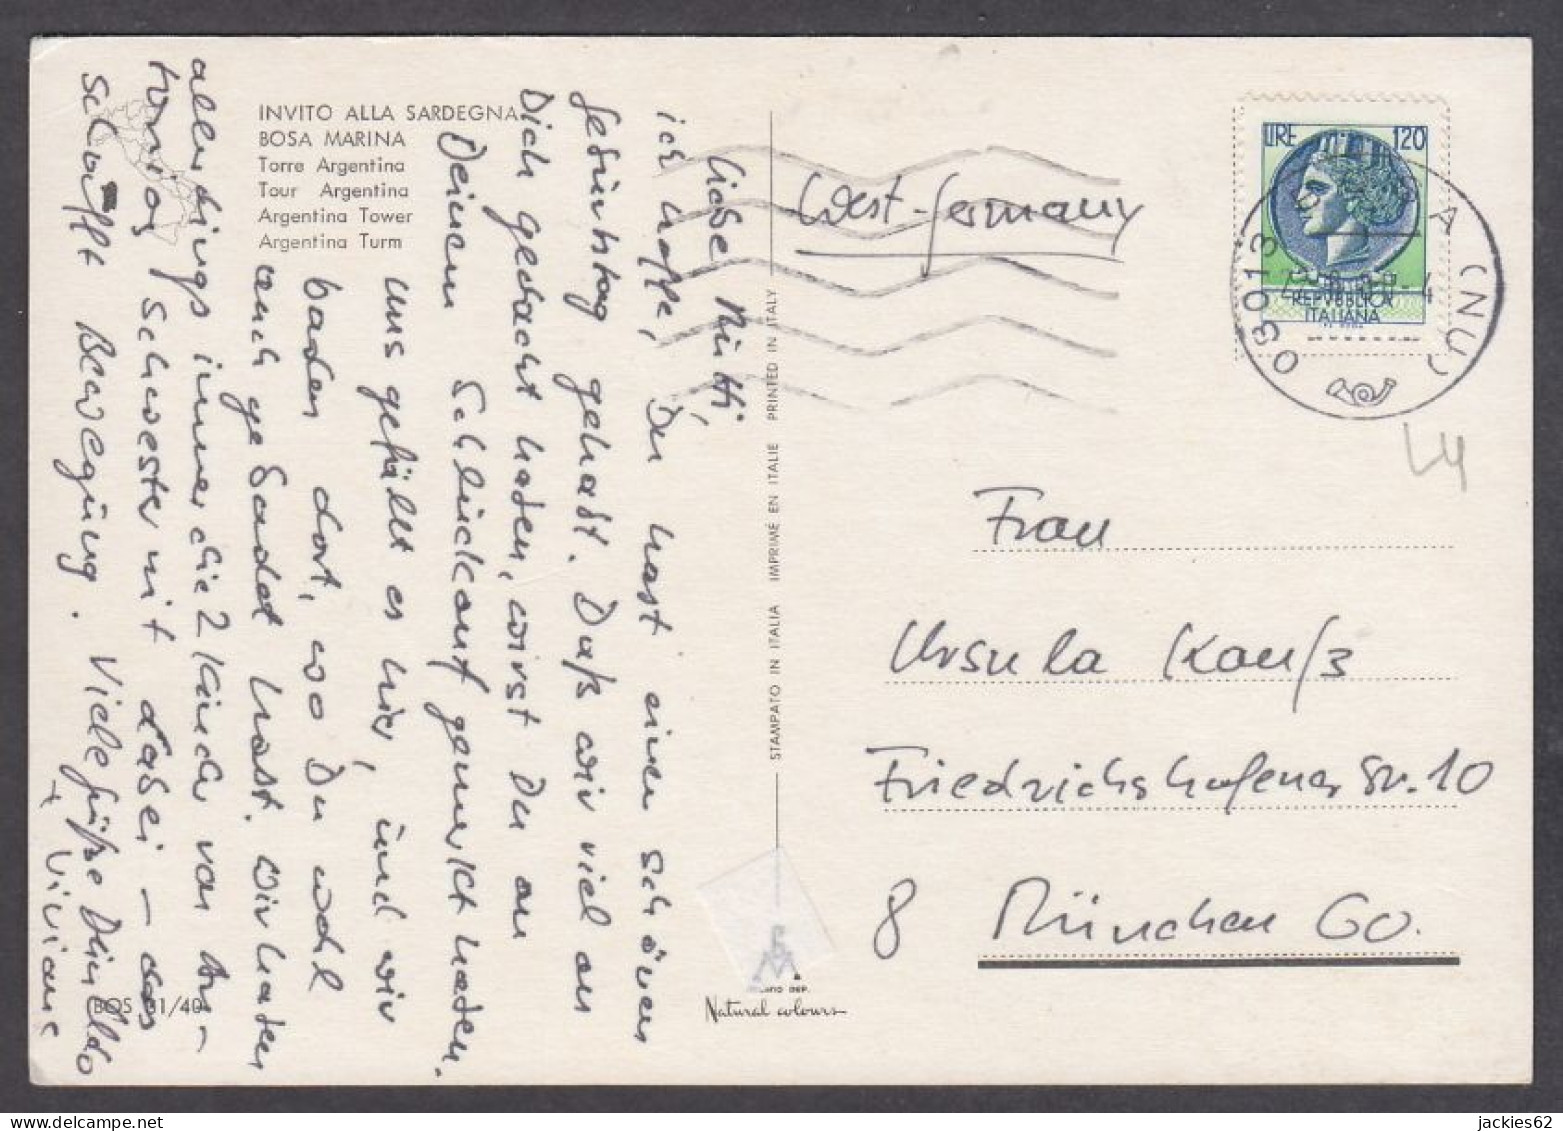 INVITO ALLA SARDEGNA
BOSA MARINA
Torre Argentina
Tour Argentina
Argentina Tower
Argentina Turm
Liebe Mutti,
ich hoffe, Du hast einen schönen
Geburtstag gehabt. Daß wir viel an
Dich gedacht haben, wirst Du an
Deinem Schluckauf gemerkt haben.
Uns gefällt es hier, und wir
baden dort, wo Du wohl
auch gebadet hast. Wir haben
allerdings immer die 2 Kinder von
Schwester mit dabei – das
schafft Bewegung. Viele Grüße Dein Udo
+ Viviane
BOS 81/40
STAMPATO IN ITALIA IMPRIMÉ EN ITALIE PRINTED IN ITALY
Natural colours
West-Germany
LIRE 120
REPVBBLICA
ITALIANA
08013 BOSA (NU)
Frau
Ursula
Friedrichshafener Str. 10
8 München 60.
jackies62